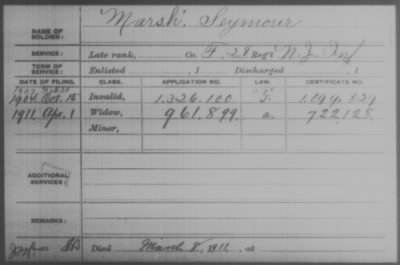 NAME OF SOLDIER: Marsh, Seymour
SERVICE: Late rank, Co. F, 28 Reg't N.J. Inf
TERM OF SERVICE: Enlisted , 1 Discharged , 1
DATE OF FILING. CLASS. APPLICATION NO. LAW. CERTIFICATE NO.
1904 Oct. 15 Invalid, 1,326,100 1,099,829
1911 Apr. 1 Widow, 961,899 a. 722128
Minor,
ADDITIONAL SERVICES:
REMARKS:
Died March 8, 1911, at